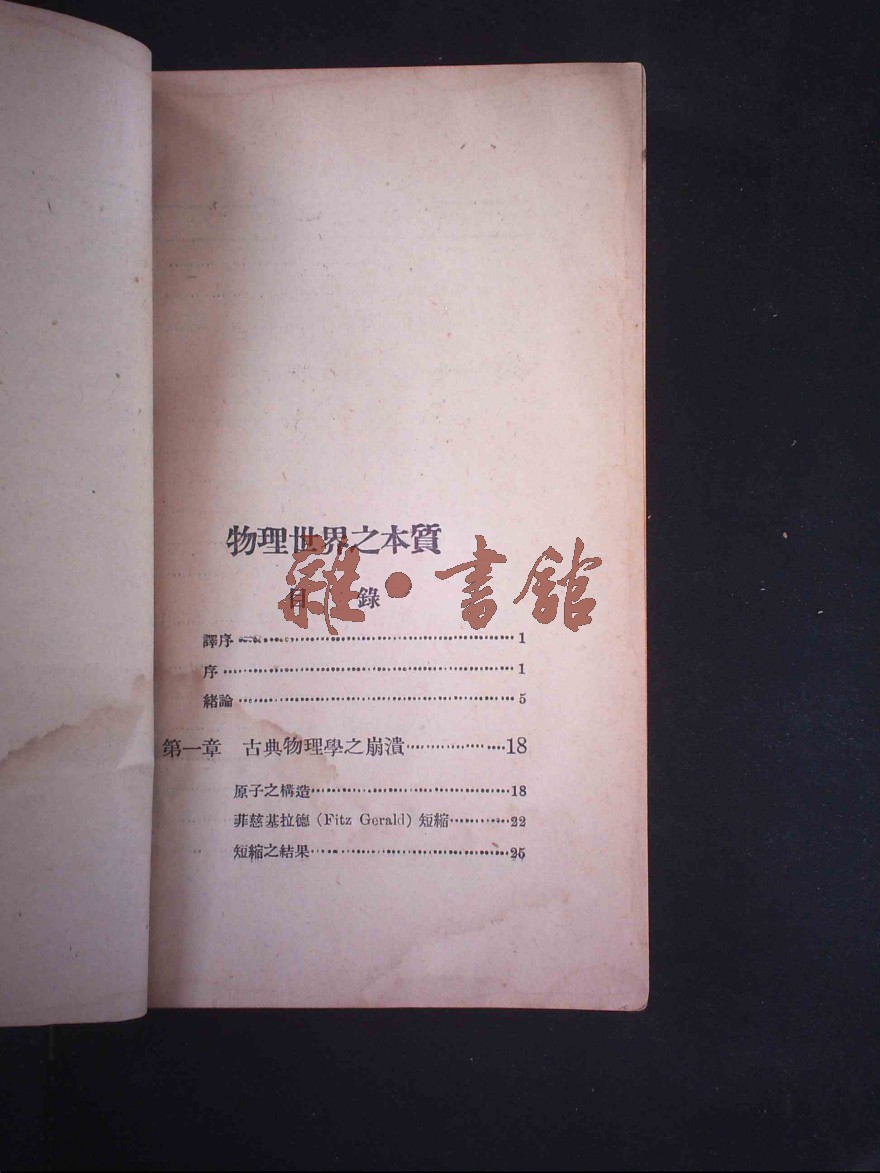 物理世界之本質
目 錄
雜·書館
譯序 1
序 1
緒論 5
第一章 古典物理學之崩潰 18
原子之構造 18
菲慈基拉德（Fitz Gerald）短縮 22
短縮之結果 25